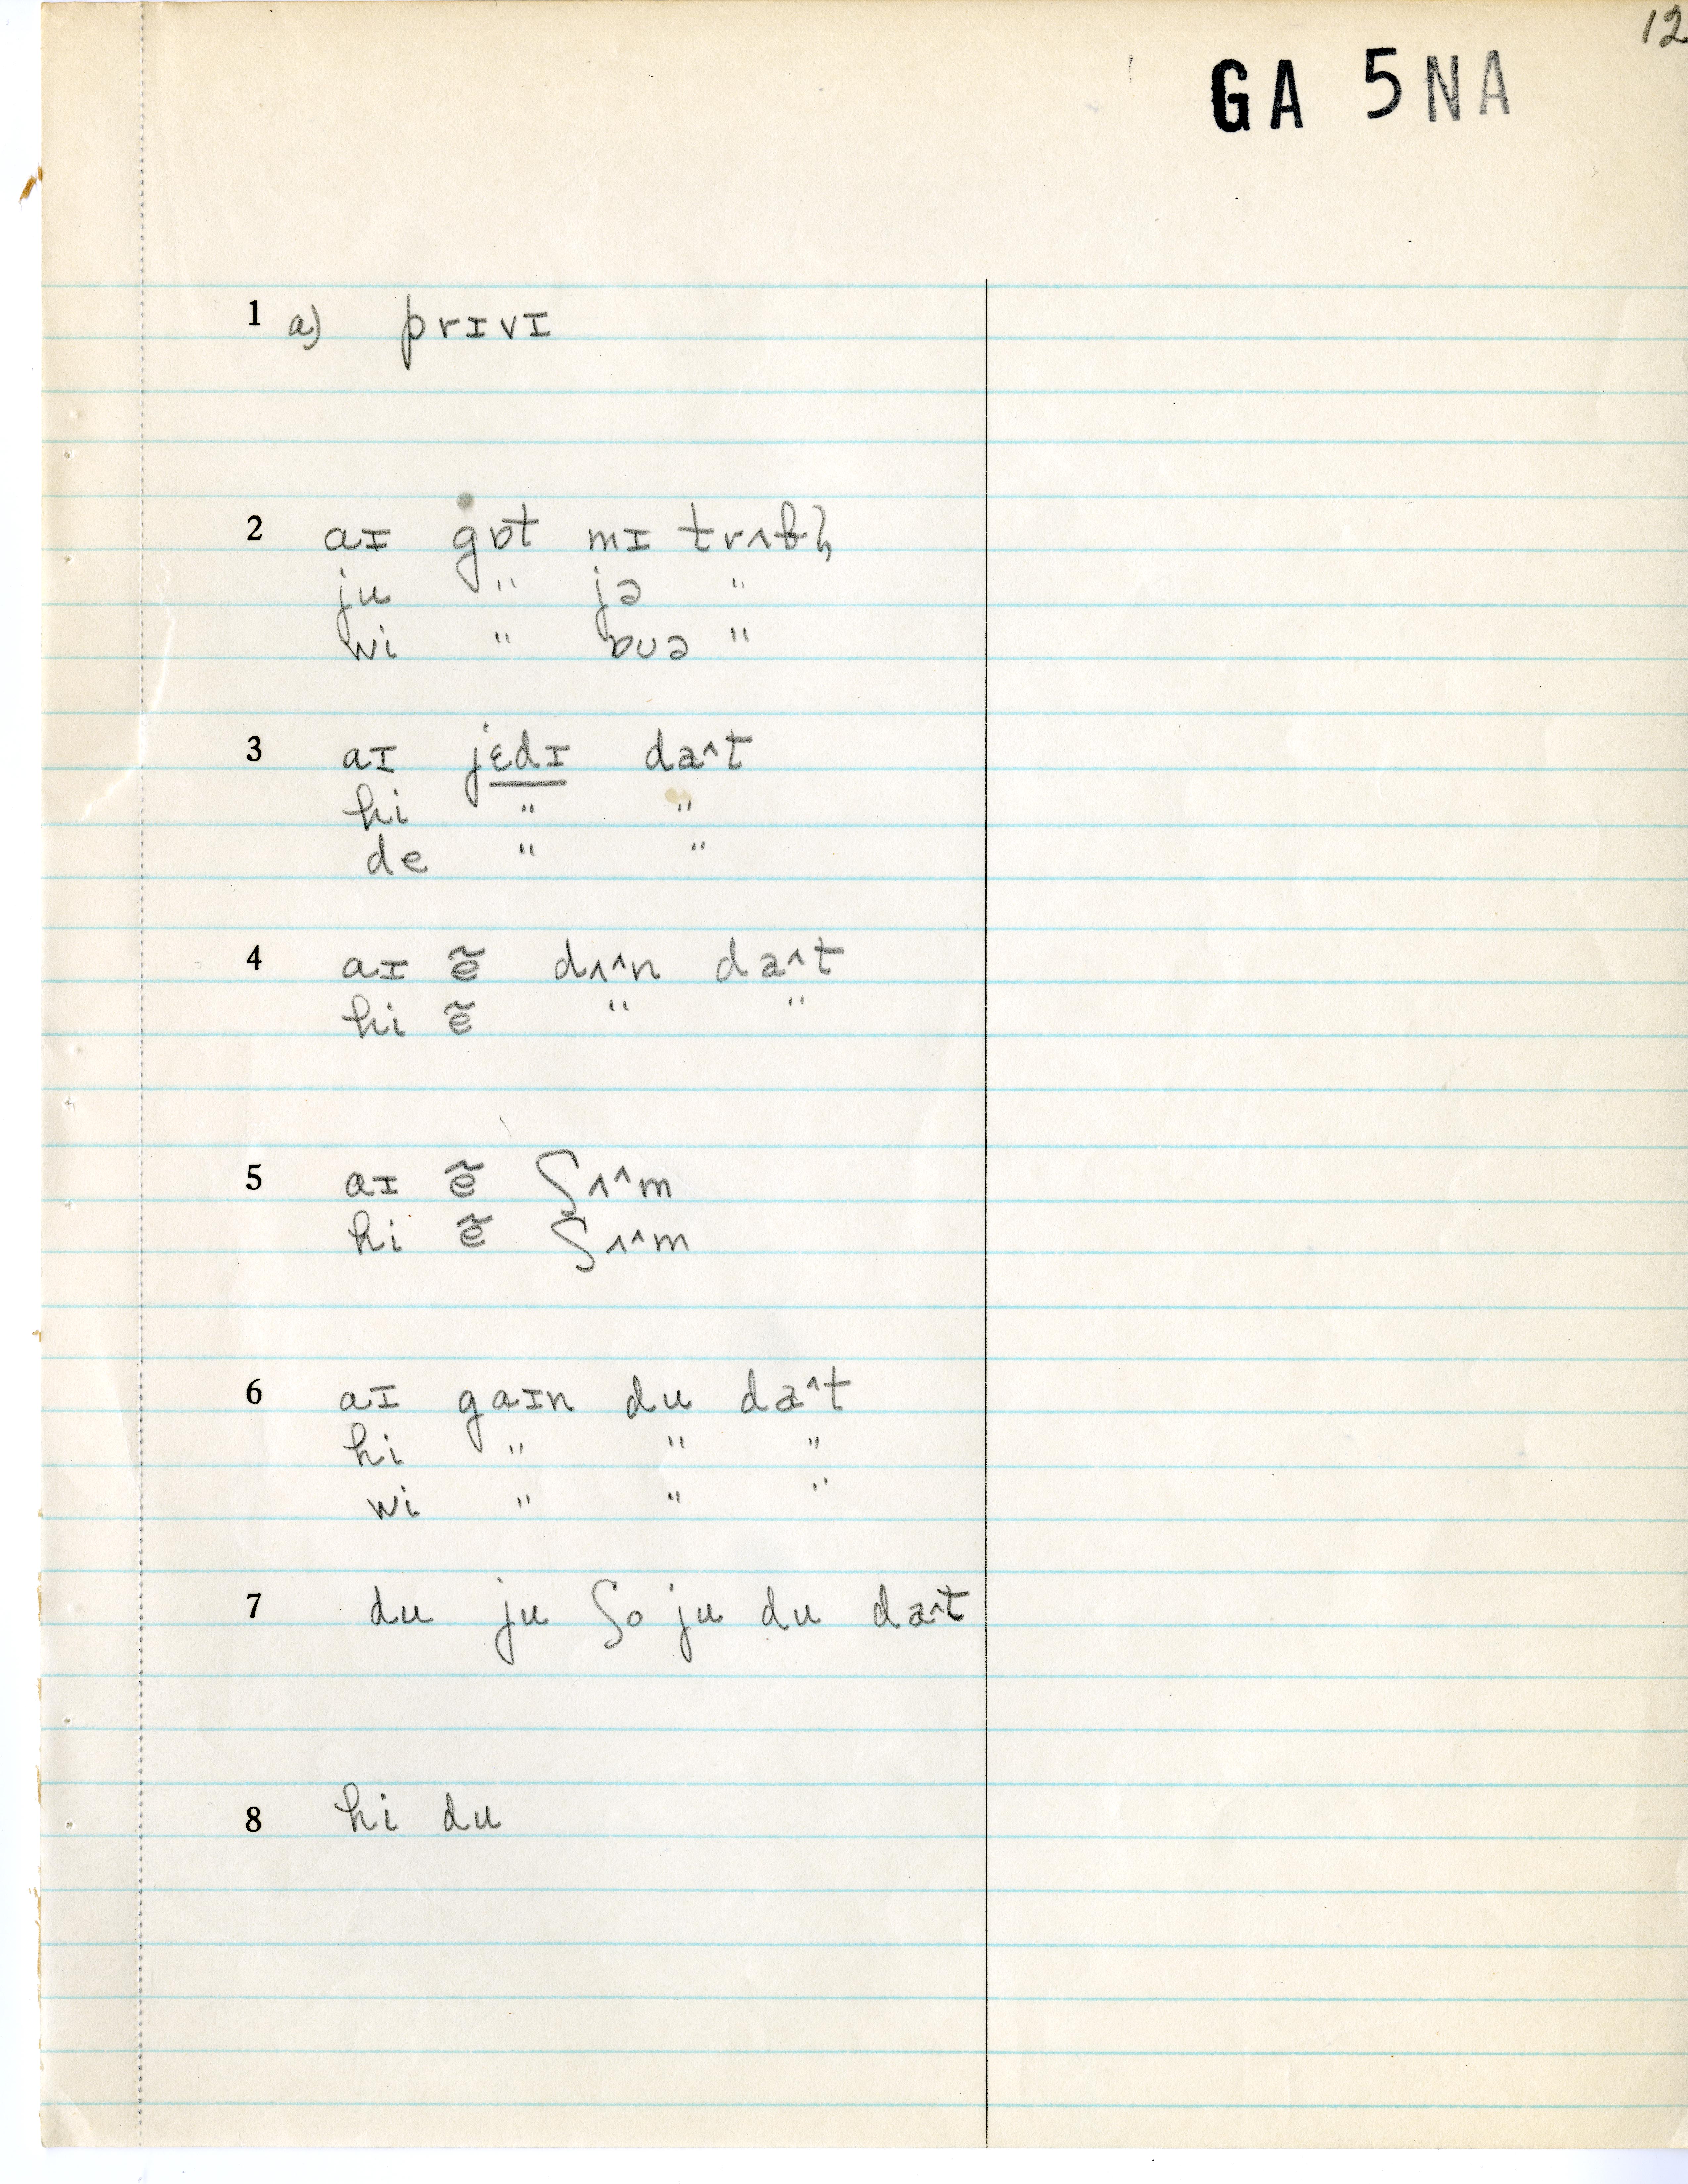 12
GA 5NA
1 a) prɪvɪ
2 aɪ gɒt mɪ
ju " jə "
wi " ɒuə "
3 aɪ jɛdɪ da^t
hi " "
de " "
4 aɪ ẽ dʌ^n da^t
hi ẽ " "
5 aɪ ẽ ʃʌ^m
hi ẽ ʃʌ^m
6 aɪ gaɪn du da^t
hi " " "
wi " " "
7 du ju ʃo ju du da^t
8 hi du